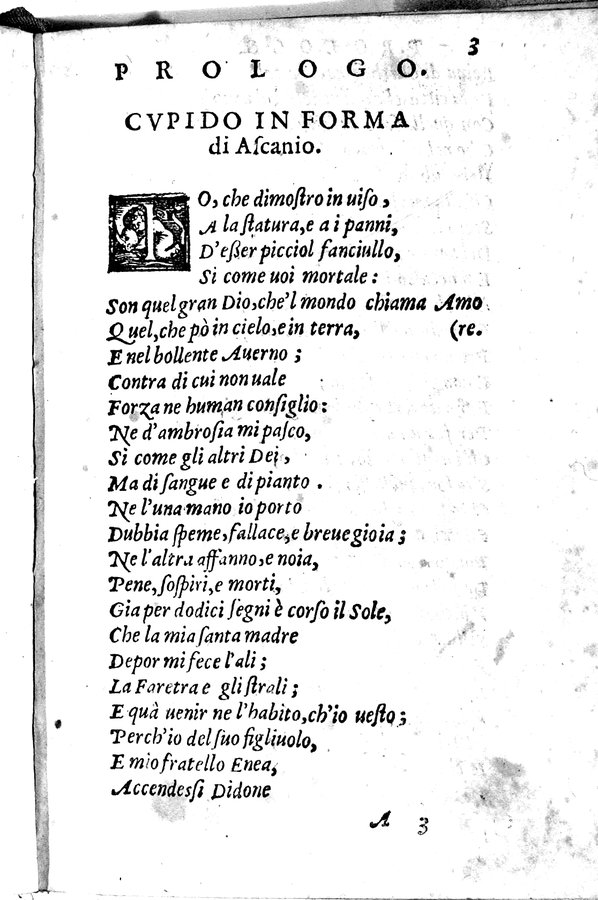 3
PROLOGO.
CVPIDO IN FORMA
di Aſcanio.
IO, che dimoſtro in uiſo,
A la ſtatura, e a i panni,
D'eßer picciol fanciullo,
Si come uoi mortale:
Son quel gran Dio, che'l mondo chiama Amo
Quel, che pò in cielo, e in terra, (re.
E nel bollente Auerno;
Contra di cui non uale
Forza ne human conſiglio:
Ne d'ambroſia mi paſco,
Si come gli altri Dei,
Ma di ſangue e di pianto.
Ne l'una mano io porto
Dubbia ſpeme, fallace, e breue gioia;
Ne l'altra affanno, e noia,
Pene, ſoſpiri, e morti,
Gia per dodici ſegni è corſo il Sole,
Che la mia ſanta madre
Depor mi fece l'ali;
La Faretra e gli ſtrali;
E quà uenir ne l'habito, ch'io ueſto;
Perch'io del ſuo figliuolo,
E mio fratello Enea,
Accendeſſi Didone
A 3